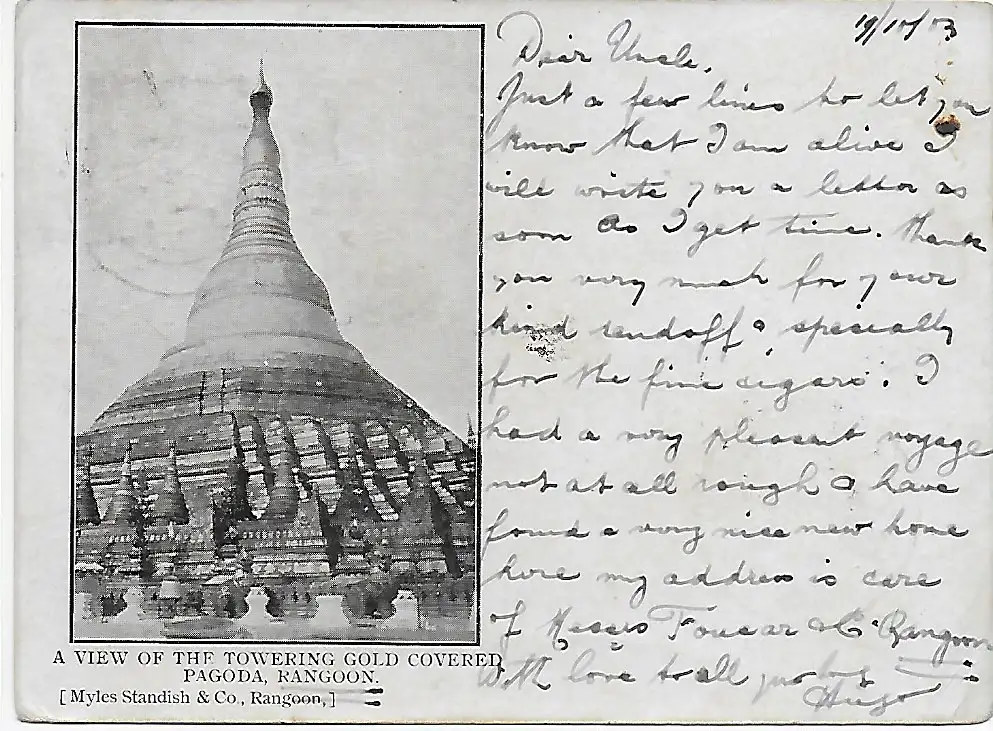 19/10/03
Dear Uncle,
Just a few lines to let you
know that I am alive I
will write you a letter as
soon as I get time. Thank
you very much for your
kind sendoff & specially
for the fine cigars. I
had a very pleasant voyage
not at all rough & have
found a very nice new home
here my address is care
of Messrs Foucar & Co Rangoon
With love to all
Hugo
A VIEW OF THE TOWERING GOLD COVERED
PAGODA, RANGOON.
[ Myles Standish & Co., Rangoon, ]